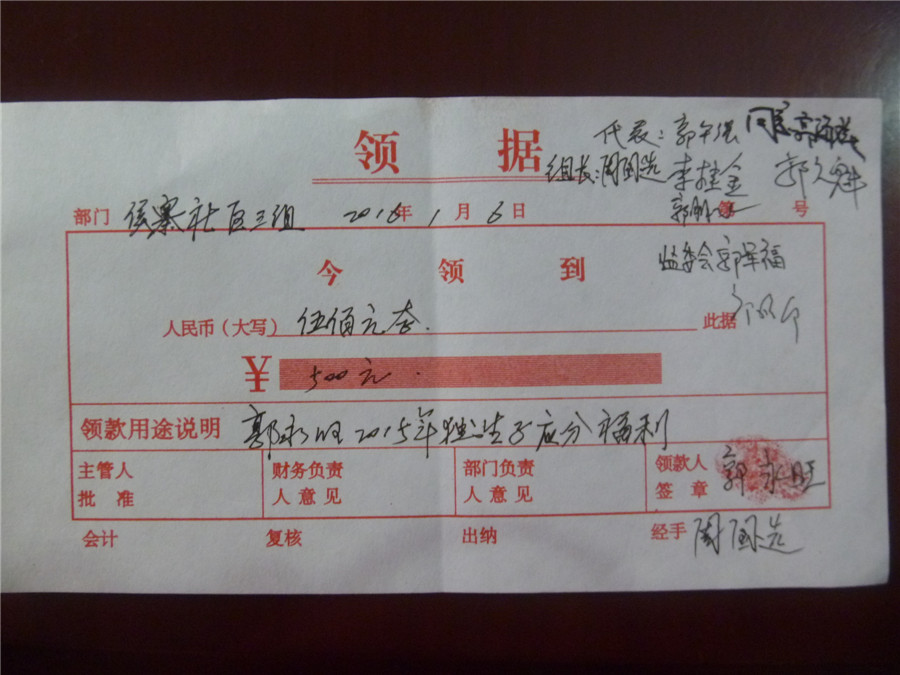 领据
代表：郭午强 同意
组长：周国选 李桂全 郭久魁
部门 侯寨社区三组 2016年1月6日 第 号
今领到
监委会郭军福
人民币（大写）伍佰元整. 此据
¥ 500元.
领款用途说明 郭永旺2015年独生子应分福利
主管人批准
财务负责人意见
部门负责人意见
领款人签章 郭永旺
会计 复核 出纳 经手 周国选